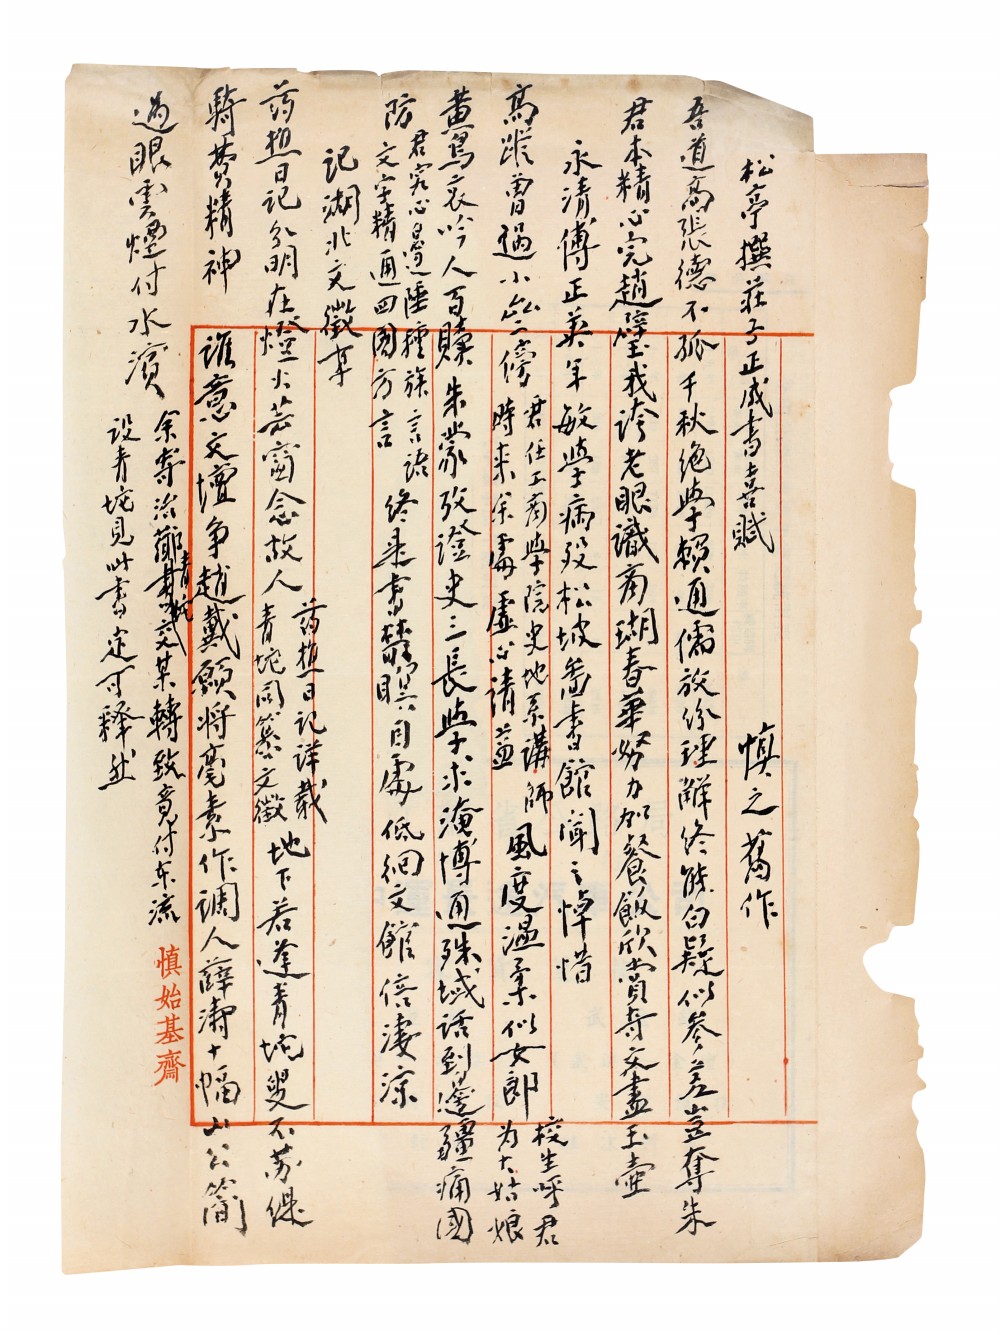 松亭撰莊子正成書喜賦 慎之舊作
吾道高張德不孤千秋絕學賴通儒放紛理解終能白疑似參差豈奪朱
君本精心完趙璧我誇老眼識商瑚春華努力加餐飯欣賞奇文盡玉壺
永清傅正英年敏學病歿松坡圖書館聞之悼惜
高蹤曾過小齋傍
君任工商學院史地系講師
時來余處虛心請益
風度溫柔似女郎
校生呼君
為大姑娘
黃鳥哀吟人百贖朱蒙攷證史三長學求淹博通殊域話到邊疆痛國
防
君究心邊陲種族言語
文字精通四國方言
終來書叢瞑目處低徊文館倍淒涼
記湖北文徵事
葯想日記分明在燈火芸窗念故人
葯想日記詳載
青垞同纂文徵
地下若逢青垞叟不荪繼
騎費精神
誰意文壇爭趙戴願將毫素作調人薛濤十幅山公簡
過眼雲煙付水濱
余寄治薌青垞書交某轉致竟付東流
設青垞見此書定可釋然
慎始基齋